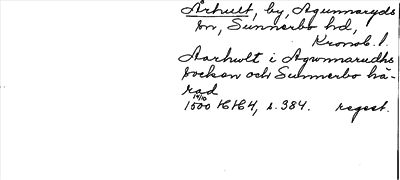 Århult, by, Agunnaryds
sn, Sunnerbo hd,
Kronob. l.
Aarhwlt i Agwnnarudhs
sockan och Sunnerbo hä-
rad
14/10
1500 HH4, s. 384. regest.